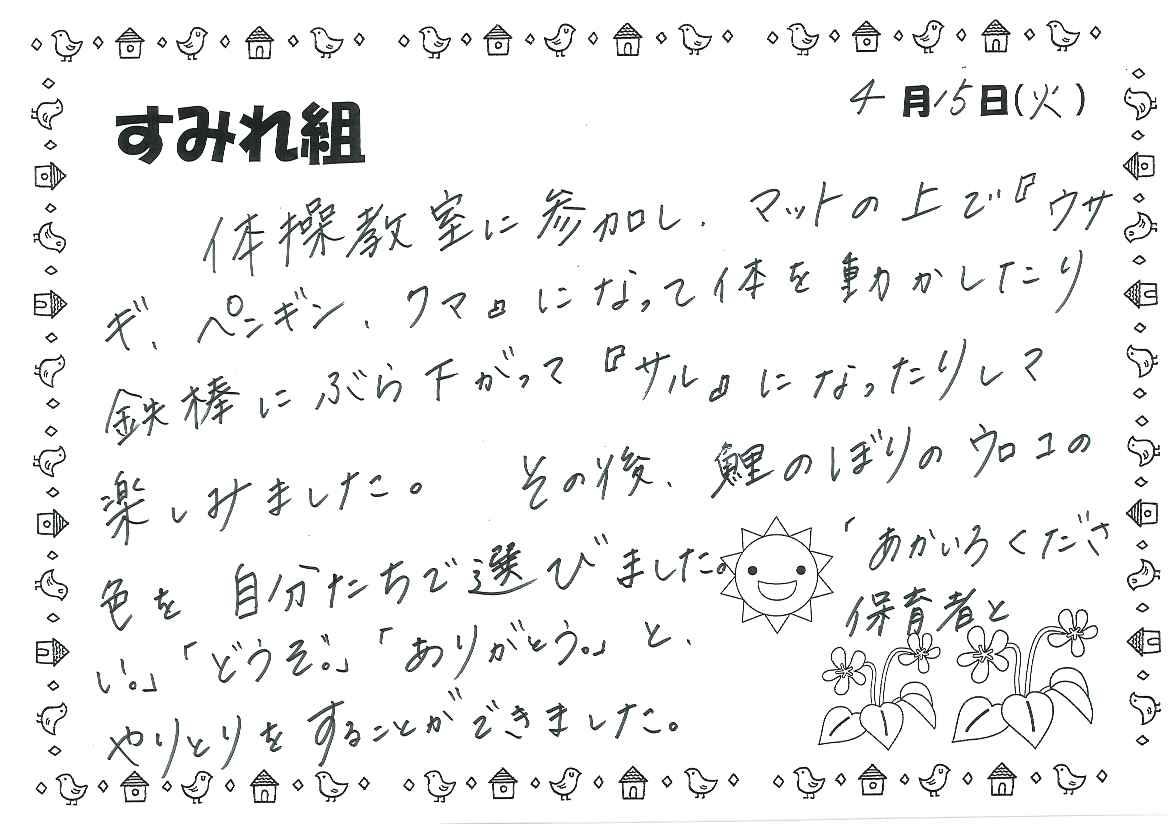 すみれ組
4月15日(火)
体操教室に参加し、マットの上で『ウサ
ギ、ペンギン、クマ』になって体を動かしたり
鉄棒にぶら下がって『サル』になったりしマ
楽しみました。 その後、鯉のぼりのウロコの
色を自分たちで選びました。「あかいろくださ
い。」「どうぞ。」「ありがとう。」と、保育者と
やりとりをすることができました。